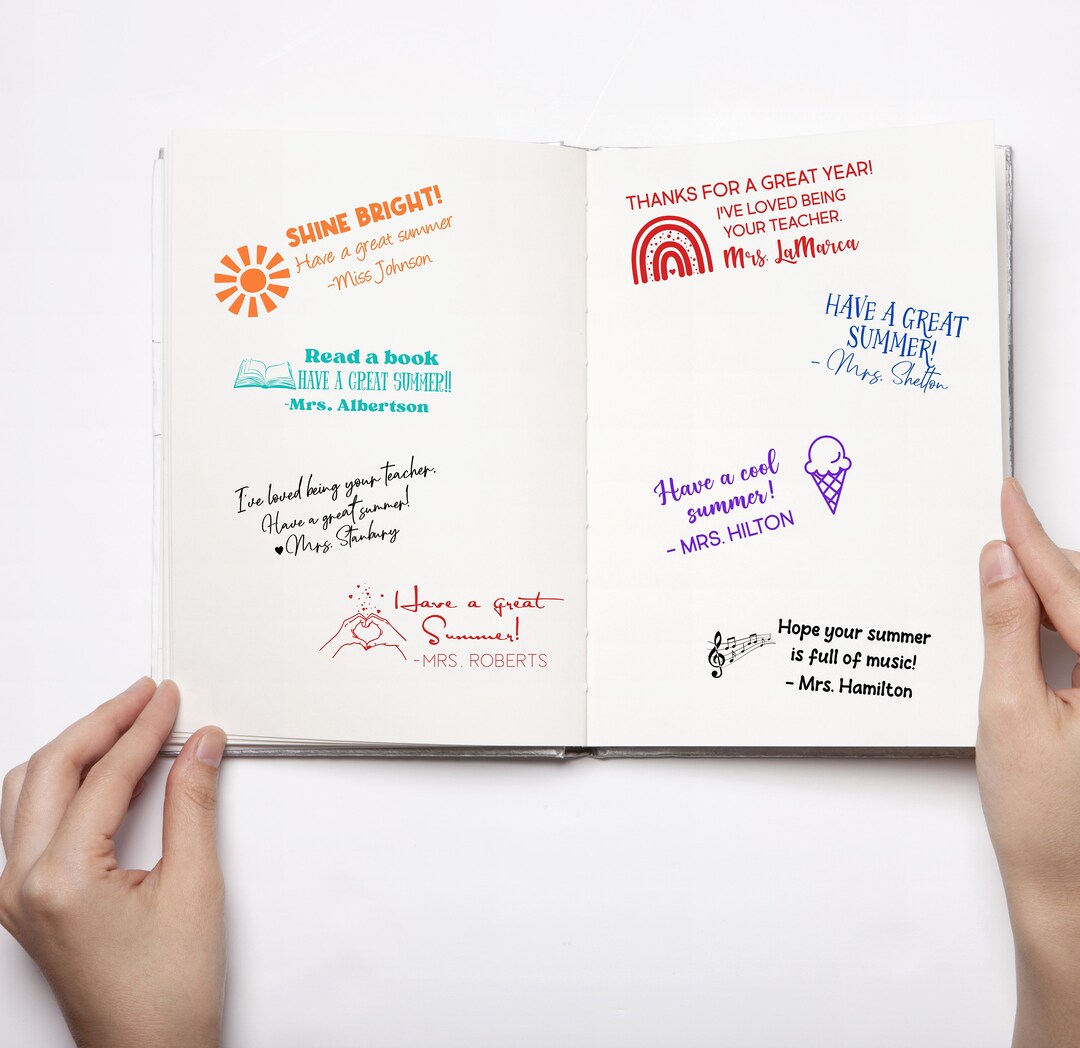 SHINE BRIGHT!
Have a great summer
-Miss Johnson
Read a book
HAVE A GREAT SUMMER!!
-Mrs. Albertson
I've loved being your teacher.
Have a great summer!
♥Mrs. Stanbury
Have a great
Summer!
-MRS. ROBERTS
THANKS FOR A GREAT YEAR!
I'VE LOVED BEING
YOUR TEACHER.
Mrs. LaMarca
HAVE A GREAT
SUMMER!
- Mrs. Shelton
Have a cool
summer!
- MRS. HILTON
Hope your summer
is full of music!
- Mrs. Hamilton